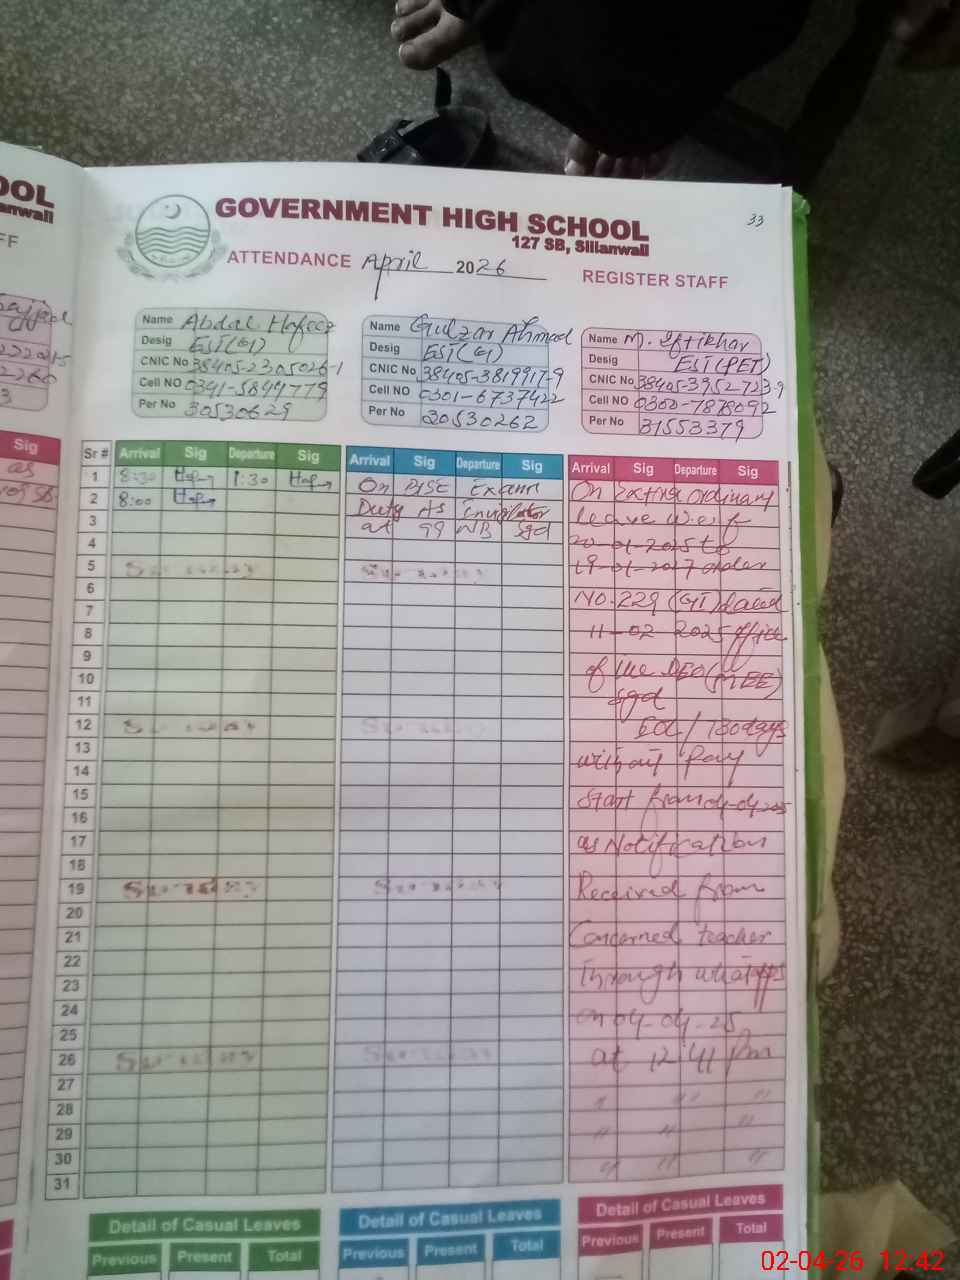 OOL
anwali
FF
Sig
as
33
GOVERNMENT HIGH SCHOOL
127 SB, Sillanwali
ATTENDANCE April 2026 REGISTER STAFF
Name Abdal Hafeez
Desig EST(G)
CNIC No 38405-2305026-1
Cell NO 0341-5844779
Per No 30530629
Name Gulzar Ahmad
Desig EST(G)
CNIC No 38405-3819917-9
Cell NO 0301-6737422
Per No 30530262
Name M. Iftikhar
Desig EST(PET)
CNIC No 38405-3952723-9
Cell NO 0300-7878092
Per No 31553379
Sr # Arrival Sig Departure Sig
1 8:30 1:30
2 8:00
3
4
5 Sunday
6
7
8
9
10
11
12 Sunday
13
14
15
16
17
18
19 Sunday
20
21
22
23
24
25
26 Sunday
27
28
29
30
31
Arrival Sig Departure Sig
On BISE Exam
Duty As
at 99 NB Sgd
Sunday
Sunday
Sunday
Sunday
Arrival Sig Departure Sig
On Extra ordinary
leave w.e.f
20-01-2025 to
19-01-2027 order
No. 229 (GI) dated
11-02 2025 office
of the DEO(MEE)
Sgd
EOL/730days
without Pay
Start from 04-04-2025
as Notification
Received from
Concerned teacher
Through whatapps
on 04-04-25
at 12:41 Pm
" " "
" " "
" " "
Detail of Casual Leaves
Previous Present Total
Detail of Casual Leaves
Previous Present Total
Detail of Casual Leaves
Previous Present Total
02-04-26 12:42